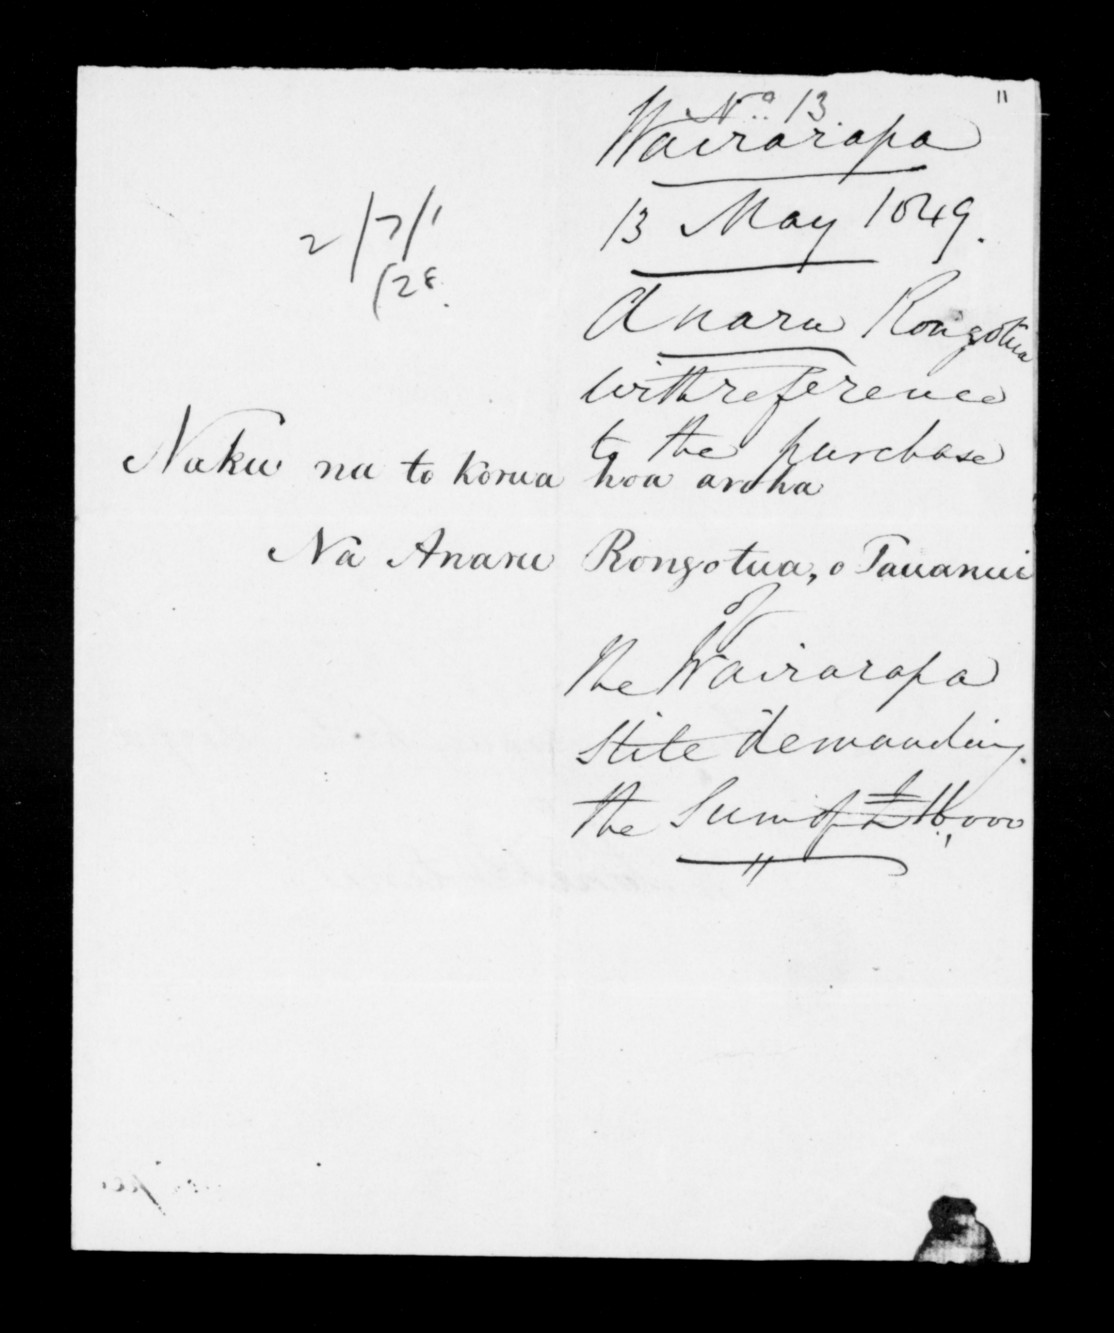 11
No. 13
Wairarapa
13 May 1849.
2/7/1
/28.
Anaru Rongotua
with reference
to the purchase
Naku na to korua hoa aroha
Na Anaru Rongotua, o Tauanui
of
the Wairarapa
State demanding
the Sum of £16,000